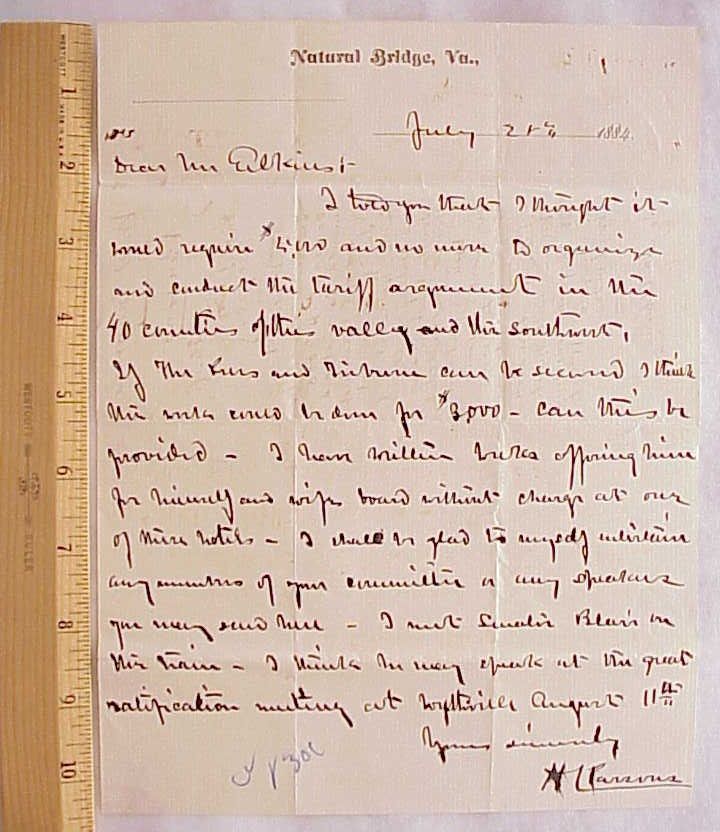 Natural Bridge, Va.,
July 21st 1884
Dear Mr Elkins
I told you that I thought it
would require $ and no more to organize
and conduct the tariff argument in the
40 counties of this valley and the southwest,
If The and Tribune can be secured I think
the work could be done for $3,000 - Can this be
provided - I have written offering him
for himself and wife board without charge at one
of these hotels - I shall be glad to myself entertain
any members of your committee or any speakers
you may send here - I met Senator Blair on
the train - I think he may speak at the great
ratification meeting at Wytheville August 11th
Yours sincerely
H C Parsons
WESTCOTT
RULER
1
2
3
4
5
6
7
8
9
10